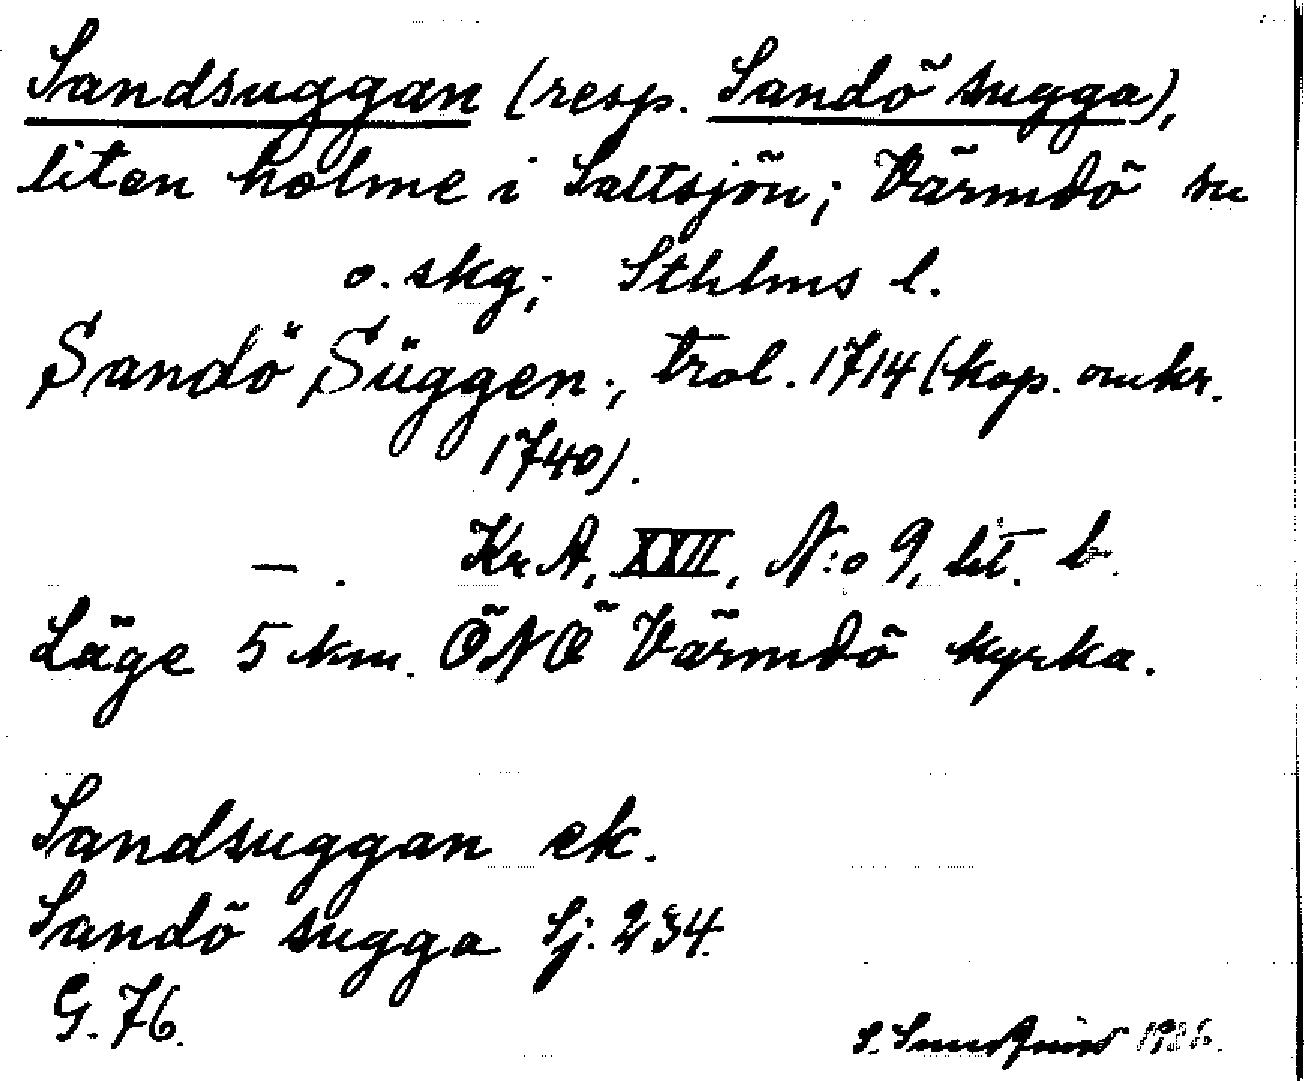 Sandsuggan (resp. Sandö sugga),
liten holme i Saltsjön; Värmdö sn
o. skg; Sthlms l.
Sandö Süggen., trol. 1714 (kop. omkr.
1740).
— . KrA, XXII, N:o 9, lit. b.
Läge 5 km. ÖNÖ Värmdö kyrka.
Sandsuggan ek.
Sandö sugga Sj. 234.
G. 76.
S.